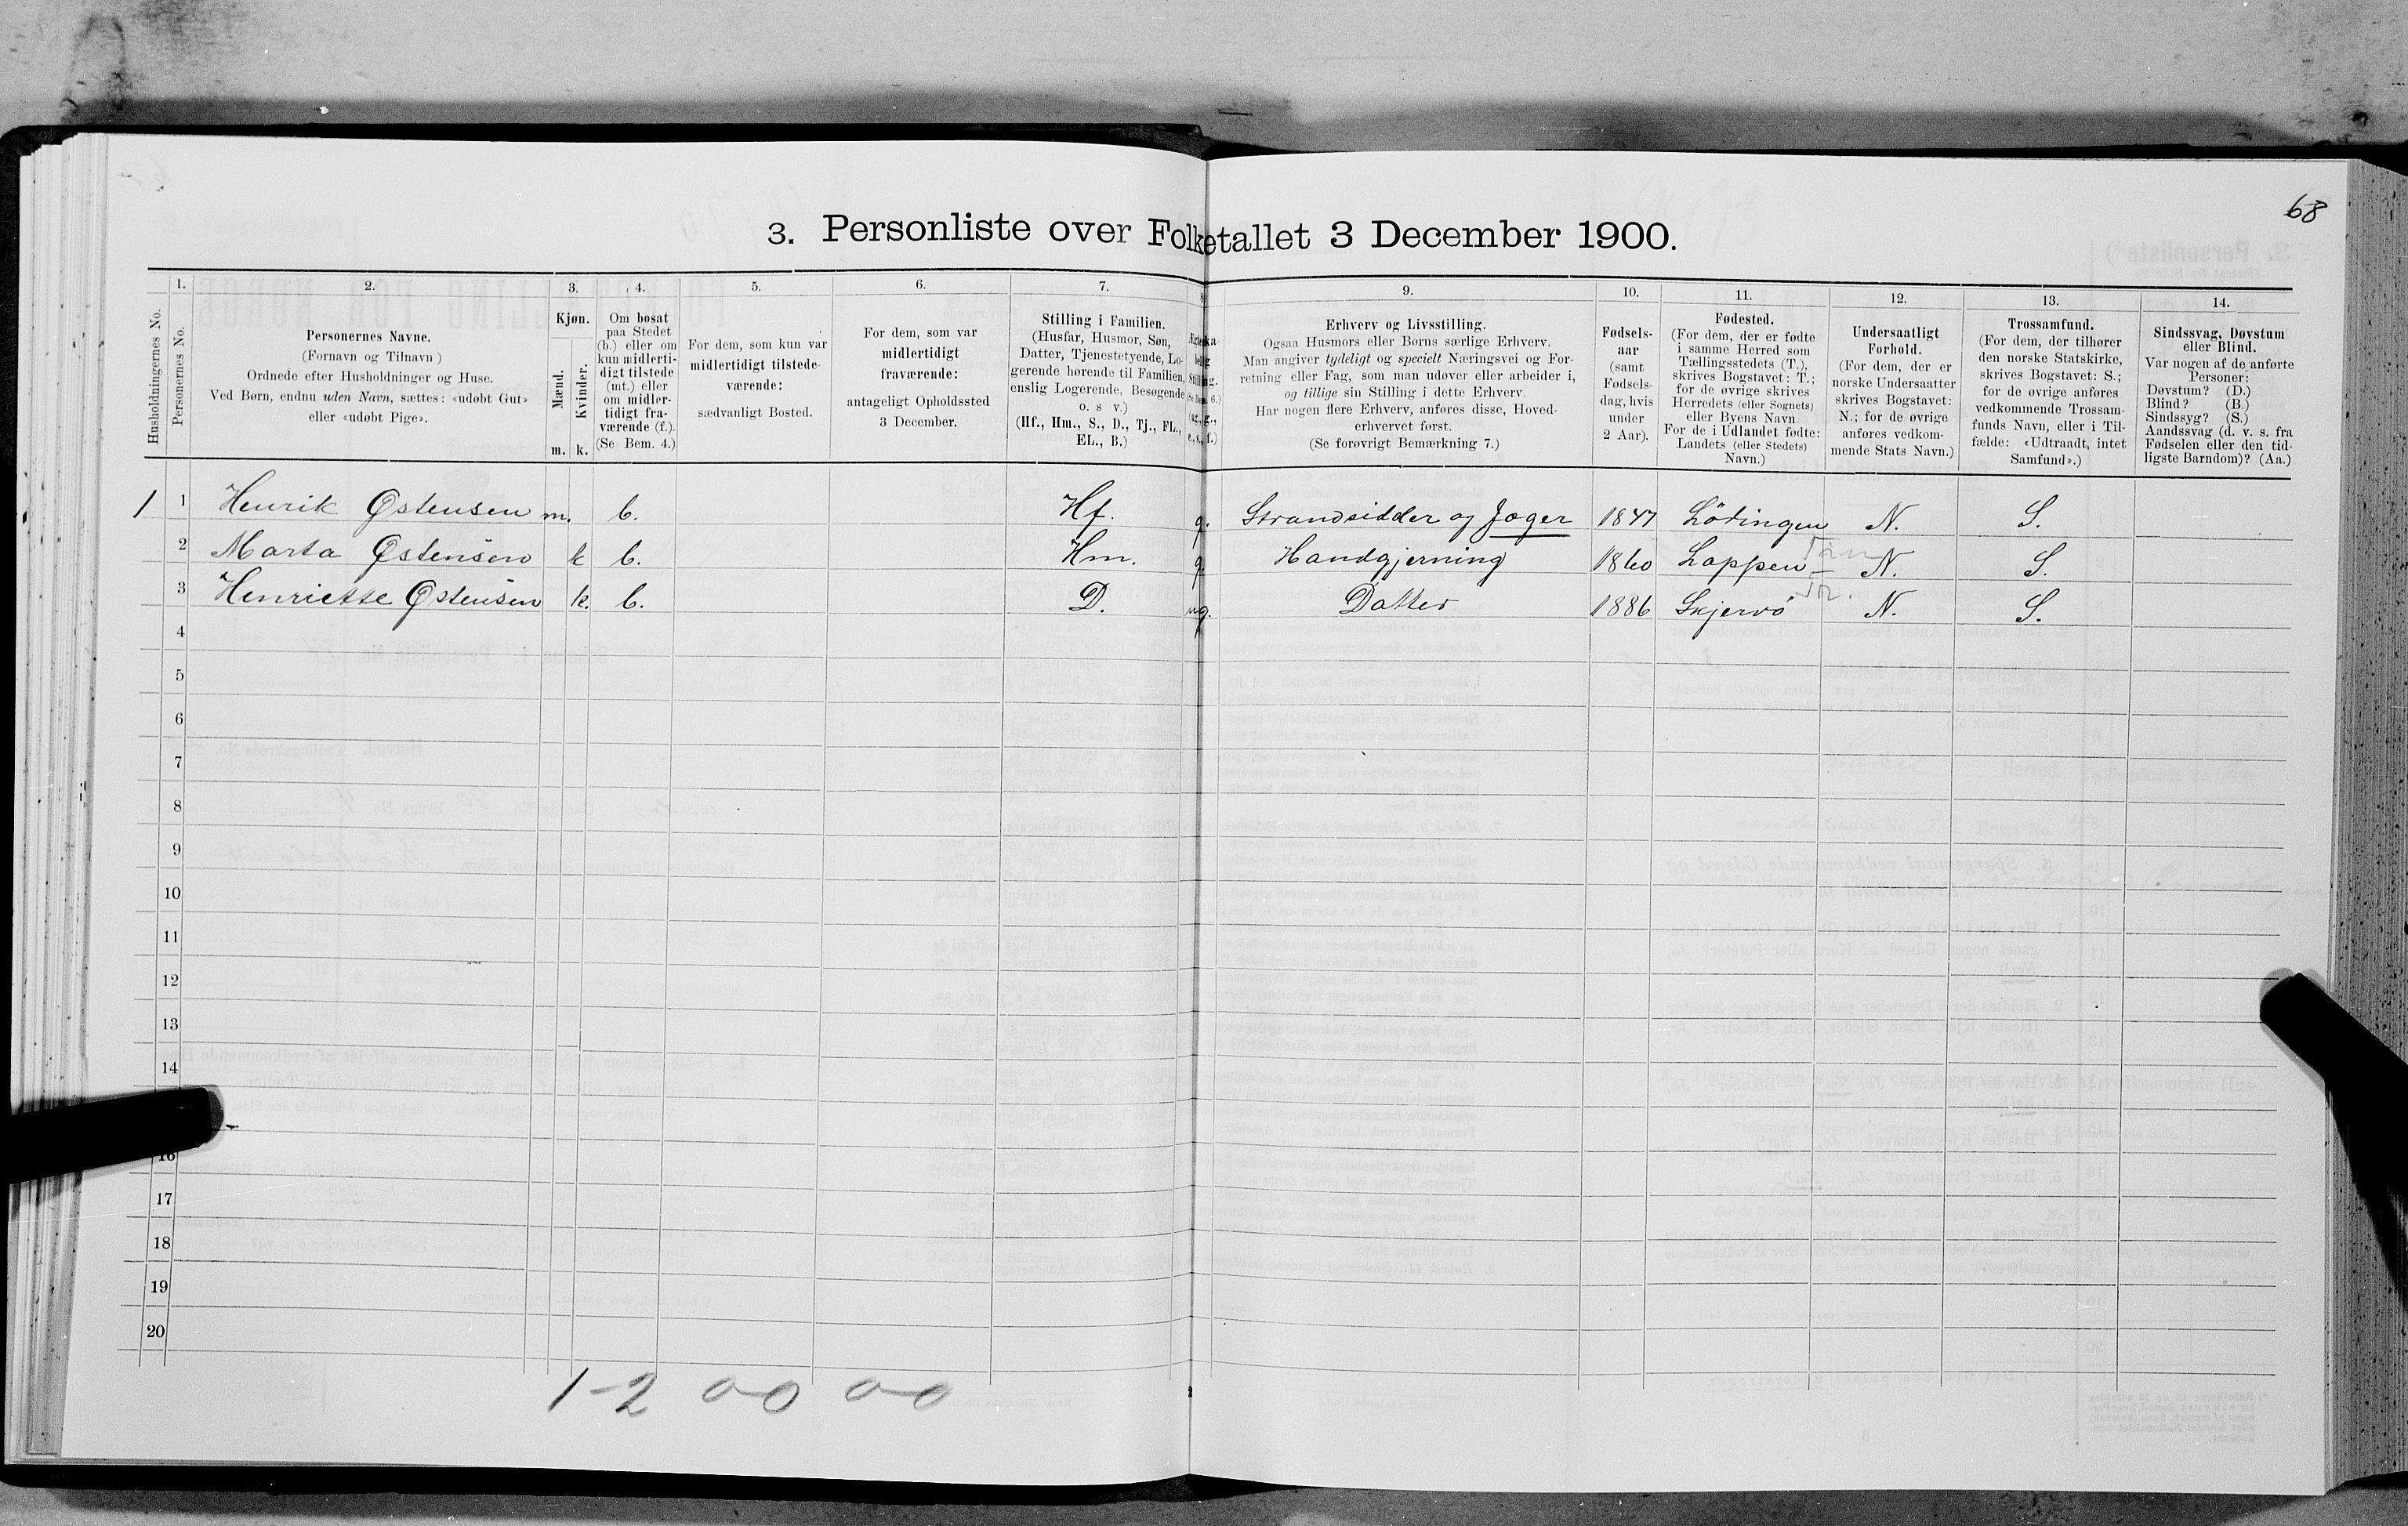 68
3. Personliste over Folketallet 3 December 1900.
Husholdningernes No.
1.
Personernes No.
2.
Personernes Navne.
(Fornavn og Tilnavn)
Ordnede efter Husholdninger og Huse.
Ved Børn, endnu uden Navn, sættes: «udøbt Gut»
eller «udøbt Pige».
3.
Kjøn.
Mænd.
Kvinder.
m. k.
4.
Om bosat
paa Stedet
(b.) eller om
kun midlerti-
digt tilstede
(mt.) eller
om midler-
tidigt fra-
værende (f.).
(Se Bem. 4.)
5.
For dem, som kun var
midlertidigt tilstede-
værende:
sædvanligt Bosted.
6.
For dem, som var
midlertidigt
fraværende:
antageligt Opholdssted
3 December.
7.
Stilling i Familien.
(Husfar, Husmor, Søn,
Datter, Tjenestetyende, Lo-
gerende hørende til Familien,
enslig Logerende, Besøgende
o. s v.)
(Hf., Hm., S., D., Tj., FL.,
EL., B.)
9.
Erhverv og Livsstilling.
Ogsaa Husmors eller Børns særlige Erhverv.
Man angiver tydeligt og specielt Næringsvei og For-
retning eller Fag, som man udøver eller arbeider i,
og tillige sin Stilling i dette Erhverv.
Har nogen flere Erhverv, anføres disse, Hoved-
erhvervet først.
(Se forøvrigt Bemærkning 7.)
10.
Fødsels-
aar
(samt
Fødsels-
dag, hvis
under
2 Aar).
11.
Fødested.
(For dem, der er fødte
i samme Herred som
Tællingsstedets (T.),
skrives Bogstavet: T.;
for de øvrige skrives
Herredets (eller Sognets)
eller Byens Navn
For de i Udlandet fødte:
Landets (eller Stedets)
Navn.)
12.
Undersaatligt
Forhold.
(For dem, der er
norske Undersaatter
skrives Bogstavet:
N.; for de øvrige
anføres vedkom-
mende Stats Navn.)
13.
Trossamfund.
(For dem, der tilhører
den norske Statskirke,
skrives Bogstavet: S.;
for de øvrige anføres
vedkommende Trossam-
funds Navn, eller i Til-
fælde: «Udtraadt, intet
Samfund».)
14.
Sindssvag, Døvstum
eller Blind.
Var nogen af de anførte
Personer:
Døvstum? (D.)
Blind? (B.)
Sindssyg? (S.)
Aandssvag (d. v. s. fra
Fødselen eller den tid-
ligste Barndom)? (Aa.)
1 1 Henrik Østensen m. b. Hf. g. Strandsidder og Jæger 1847 Lödingen N. S.
2 Marta Østensen k b. Hm. g. Handgjerning 1860 Loppen N. S.
3 Henriette Østensen k. b. D. ug. Datter 1886 Skjervö N. S.
4
5
6
7
8
9
10
11
12
13
14
16
17
18
19
20
1-2 0-0 0-0